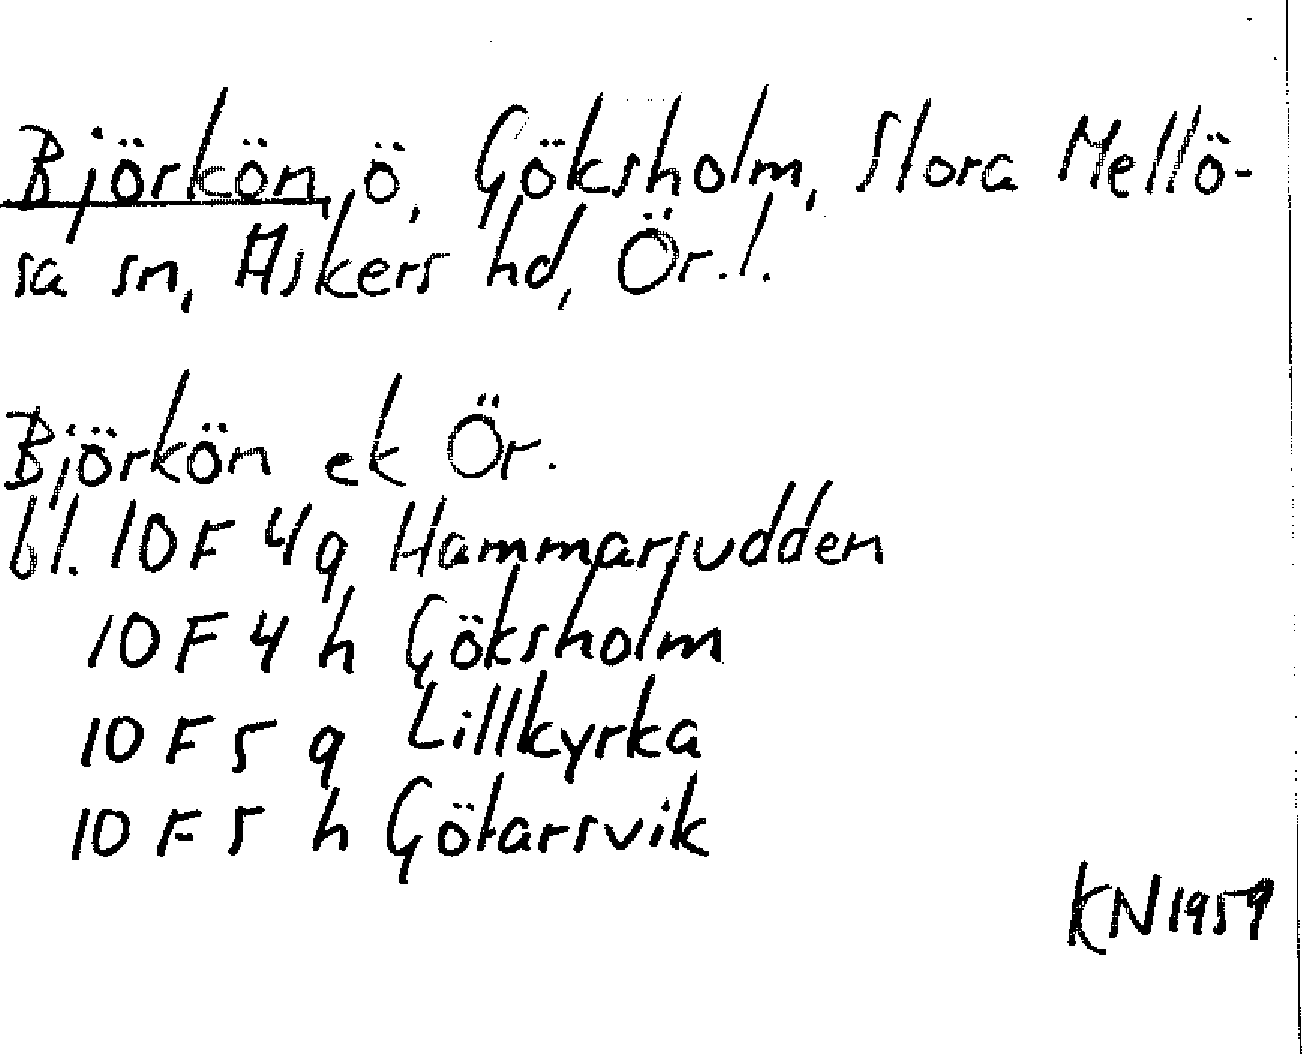 Björkön, ö, Göksholm, Stora Mellö-
sa sn, Askers hd, Ör.l.
Björkön ek Ör.
bl. 10 F 4 g Hammarsudden
10 F 4 h Göksholm
10 F 5 g Lillkyrka
10 F 5 h Götarsvik
KN 1959